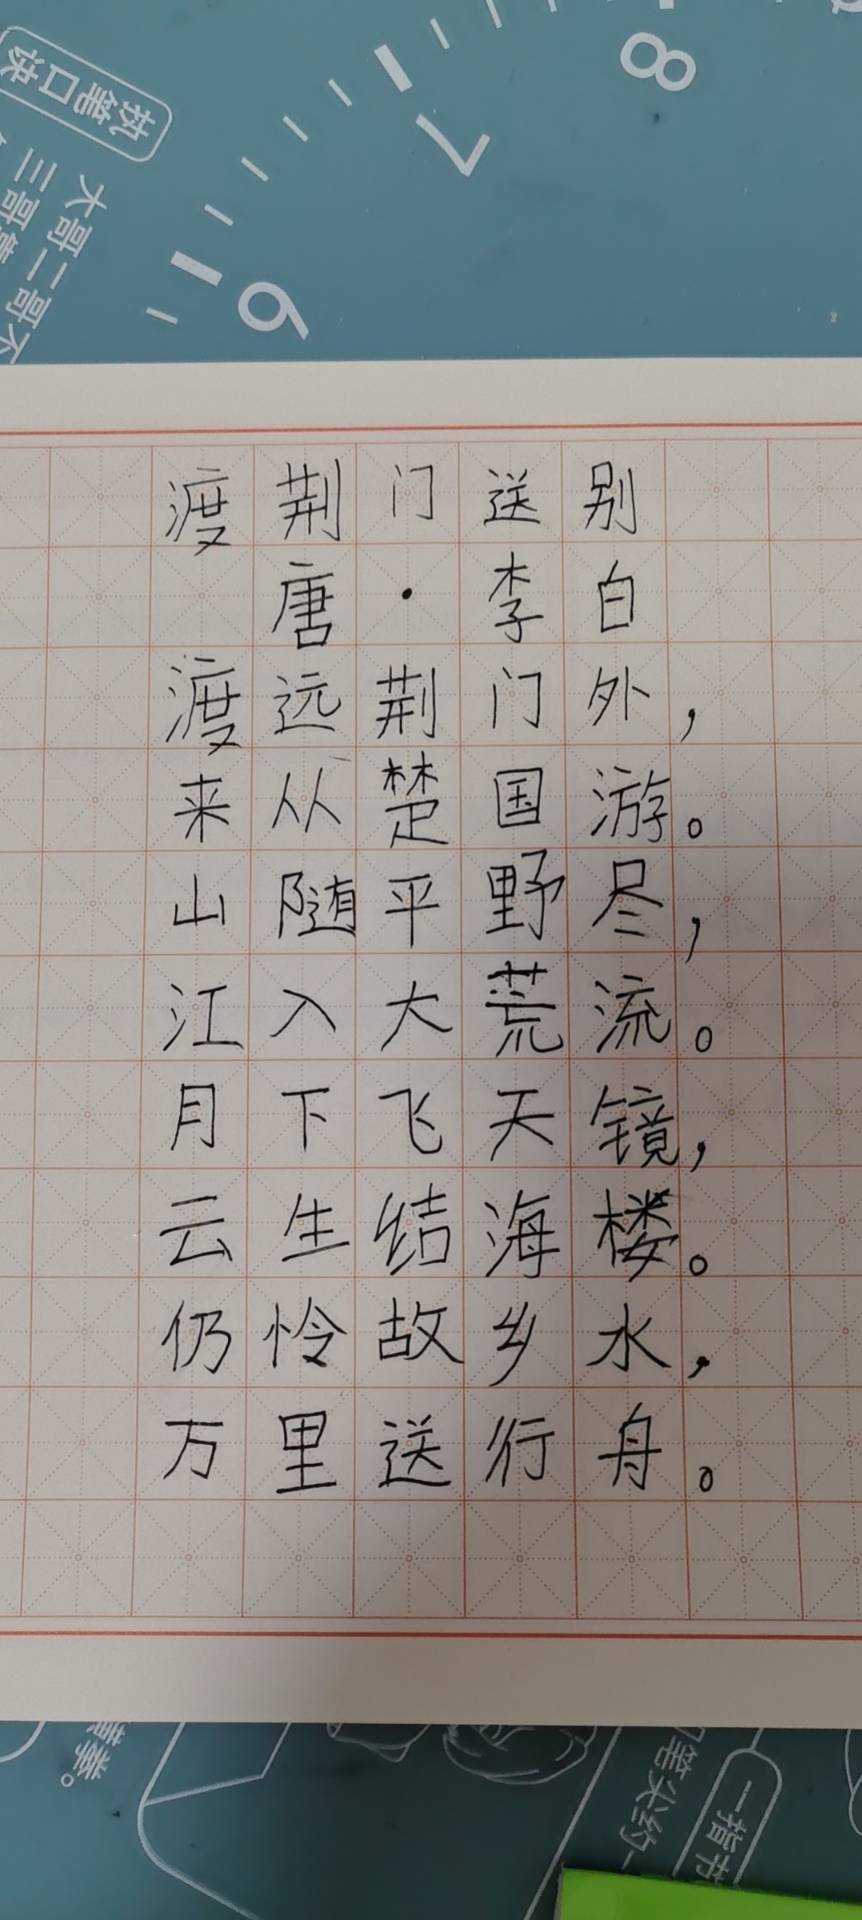 8
7
6
执笔口诀
大哥二哥不
三哥
渡荆门送别
唐·李白
渡远荆门外，
来从楚国游。
山随平野尽，
江入大荒流。
月下飞天镜，
云生结海楼。
仍怜故乡水，
万里送行舟。
笔尖约一
一指节